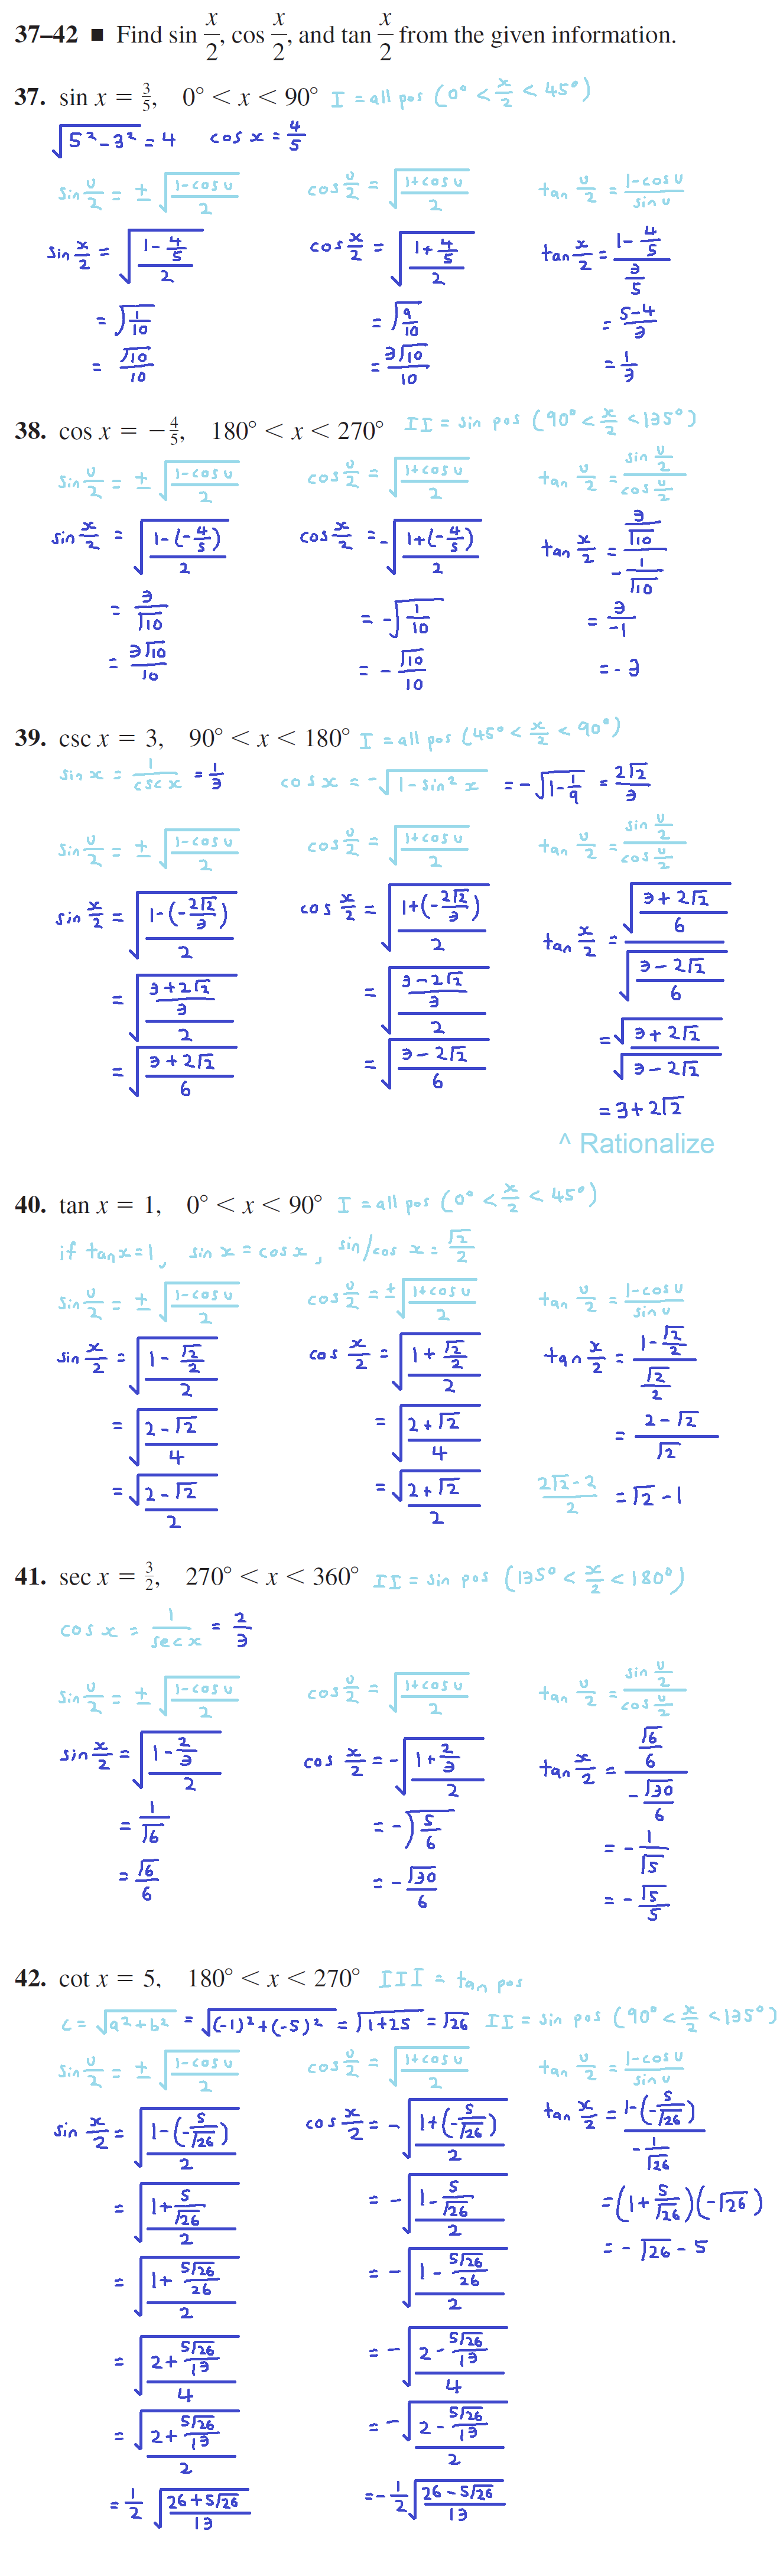 37–42 ■ Find sin x/2, cos x/2, and tan x/2 from the given information.
37. sin x = 3/5, 0° < x < 90° I = all pos (0° < x/2 < 45°)
√(5²-3²) = 4 cos x = 4/5
sin u/2 = ± √((1-cos u)/2) cos u/2 = √((1+cos u)/2) tan u/2 = (1-cos u)/(sin u)
sin x/2 = √((1-4/5)/2) cos x/2 = √((1+4/5)/2) tan x/2 = (1-4/5)/(3/5)
= √(1/10) = √(9/10) = (5-4)/3
= √10/10 = 3√10/10 = 1/3
38. cos x = -4/5, 180° < x < 270° II = sin pos (90° < x/2 < 135°)
sin u/2 = ± √((1-cos u)/2) cos u/2 = √((1+cos u)/2) tan u/2 = (sin u/2)/(cos u/2)
sin x/2 = √((1-(-4/5))/2) cos x/2 = -√((1+(-4/5))/2) tan x/2 = (3/√10)/(-1/√10)
= 3/√10 = -√(1/10) = 3/-1
= 3√10/10 = -√10/10 = -3
39. csc x = 3, 90° < x < 180° I = all pos (45° < x/2 < 90°)
sin x = 1/(csc x) = 1/3 cos x = -√(1-sin² x) = -√(1-1/9) = 2√2/3
sin u/2 = ± √((1-cos u)/2) cos u/2 = √((1+cos u)/2) tan u/2 = (sin u/2)/(cos u/2)
sin x/2 = √((1-(-2√2/3))/2) cos x/2 = √((1+(-2√2/3))/2) tan x/2 = √((3+2√2)/6)/√((3-2√2)/6)
= √(((3+2√2)/3)/2) = √(((3-2√2)/3)/2) = √(3+2√2)/√(3-2√2)
= √((3+2√2)/6) = √((3-2√2)/6) = 3+2√2
^ Rationalize
40. tan x = 1, 0° < x < 90° I = all pos (0° < x/2 < 45°)
if tan x = 1, sin x = cos x, sin/cos x = √2/2
sin u/2 = ± √((1-cos u)/2) cos u/2 = ± √((1+cos u)/2) tan u/2 = (1-cos u)/(sin u)
sin x/2 = √((1-√2/2)/2) cos x/2 = √((1+√2/2)/2) tan x/2 = (1-√2/2)/(√2/2)
= √((2-√2)/4) = √((2+√2)/4) = (2-√2)/√2
= √(2-√2)/2 = √(2+√2)/2 (2√2-2)/2 = √2-1
41. sec x = 3/2, 270° < x < 360° II = sin pos (135° < x/2 < 180°)
cos x = 1/(sec x) = 2/3
sin u/2 = ± √((1-cos u)/2) cos u/2 = √((1+cos u)/2) tan u/2 = (sin u/2)/(cos u/2)
sin x/2 = √((1-2/3)/2) cos x/2 = -√((1+2/3)/2) tan x/2 = (√6/6)/(-√30/6)
= 1/√6 = -√(5/6) = -1/√5
= √6/6 = -√30/6 = -√5/5
42. cot x = 5, 180° < x < 270° III = tan pos
c = √(a²+b²) = √((-1)²+(-5)²) = √(1+25) = √26 II = sin pos (90° < x/2 < 135°)
sin u/2 = ± √((1-cos u)/2) cos u/2 = √((1+cos u)/2) tan u/2 = (1-cos u)/(sin u)
sin x/2 = √((1-(-5/√26))/2) cos x/2 = -√((1+(-5/√26))/2) tan x/2 = (1-(-5/√26))/(-1/√26)
= √((1+5/√26)/2) = -√((1-5/√26)/2) = (1+5/√26)(-√26)
= √((1+5√26/26)/2) = -√((1-5√26/26)/2) = -√26-5
= √((2+5√26/13)/4) = -√((2-5√26/13)/4)
= √(2+5√26/13)/2 = -√(2-5√26/13)/2
= 1/2 √((26+5√26)/13) = -1/2 √((26-5√26)/13)